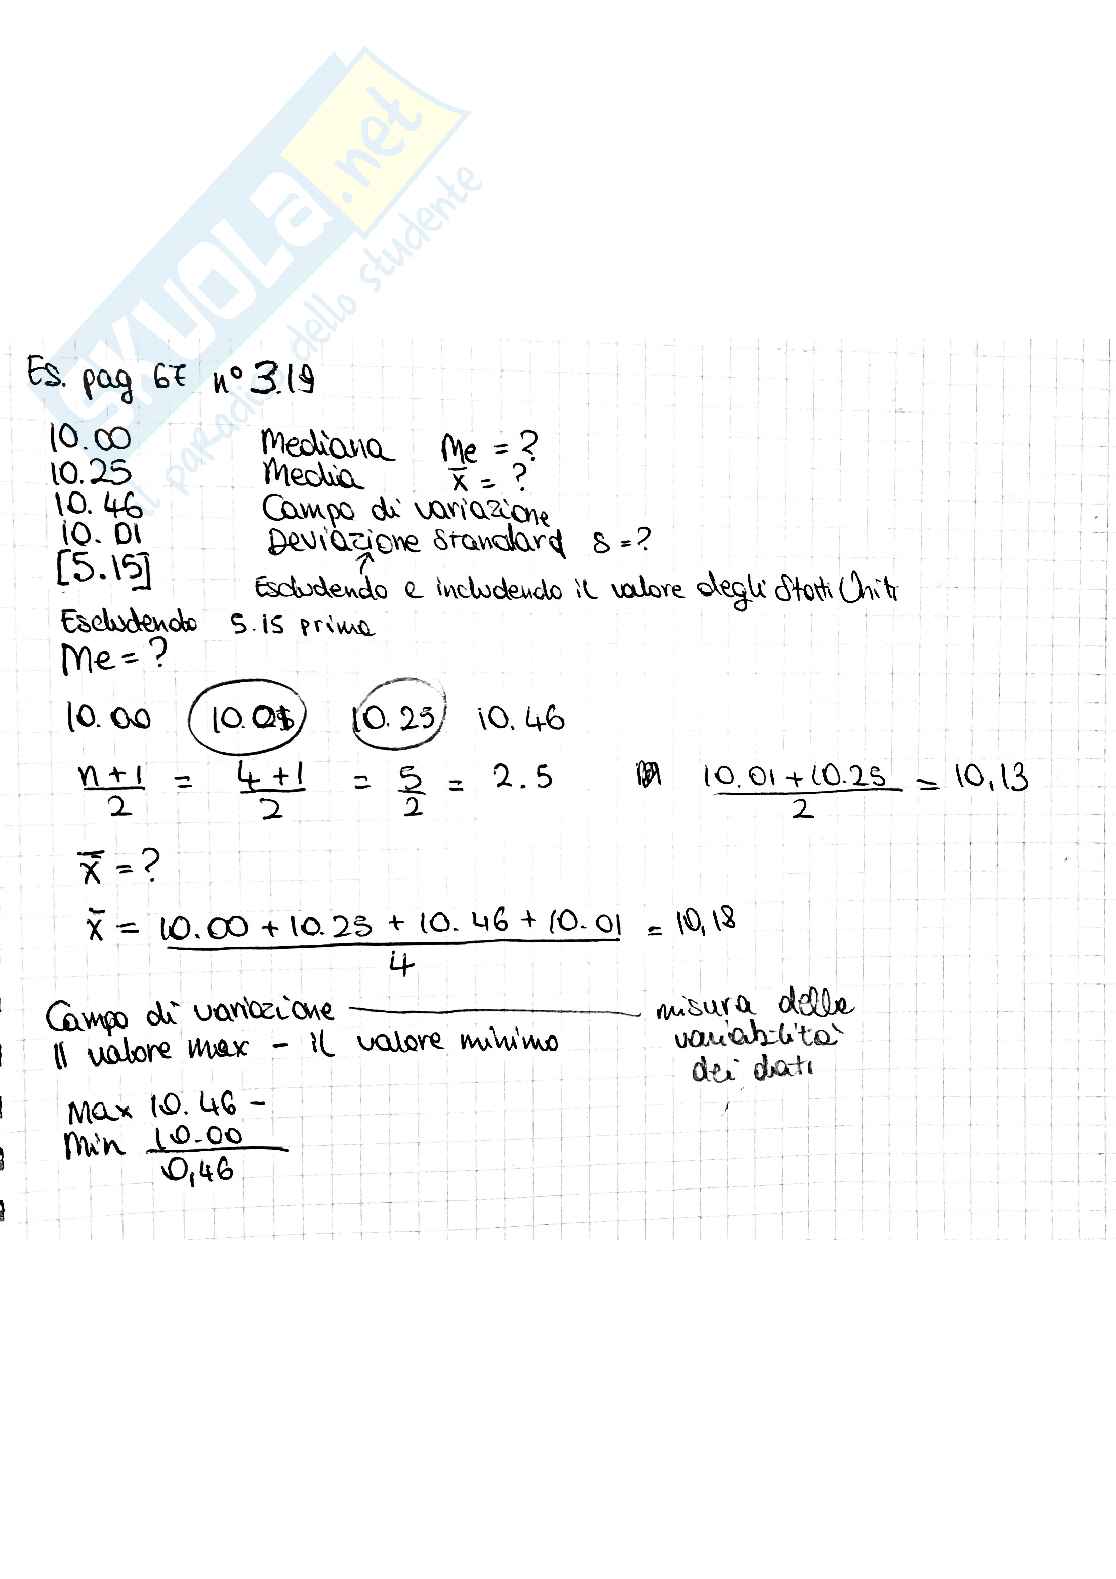 SKUOLA.net
il paradiso dello studente
Es. pag 67 n° 3.19
10.00 Mediana Me = ?
10.25 Media x̄ = ?
10.46 Campo di variazione
10.01 Deviazione Standard s = ?
[5.15] Escludendo e includendo il valore degli Stati Uniti
Escludendo 5.15 prima
Me = ?
10.00 10.01 10.25 10.46
n+1/2 = 4+1/2 = 5/2 = 2.5 10.01+10.25/2 = 10,13
x̄ = ?
x̄ = 10.00 + 10.25 + 10.46 + 10.01/4 = 10,18
Campo di variazione — misura della
Il valore max - il valore minimo variabilità
dei dati
Max 10.46 -
Min 10.00
0,46